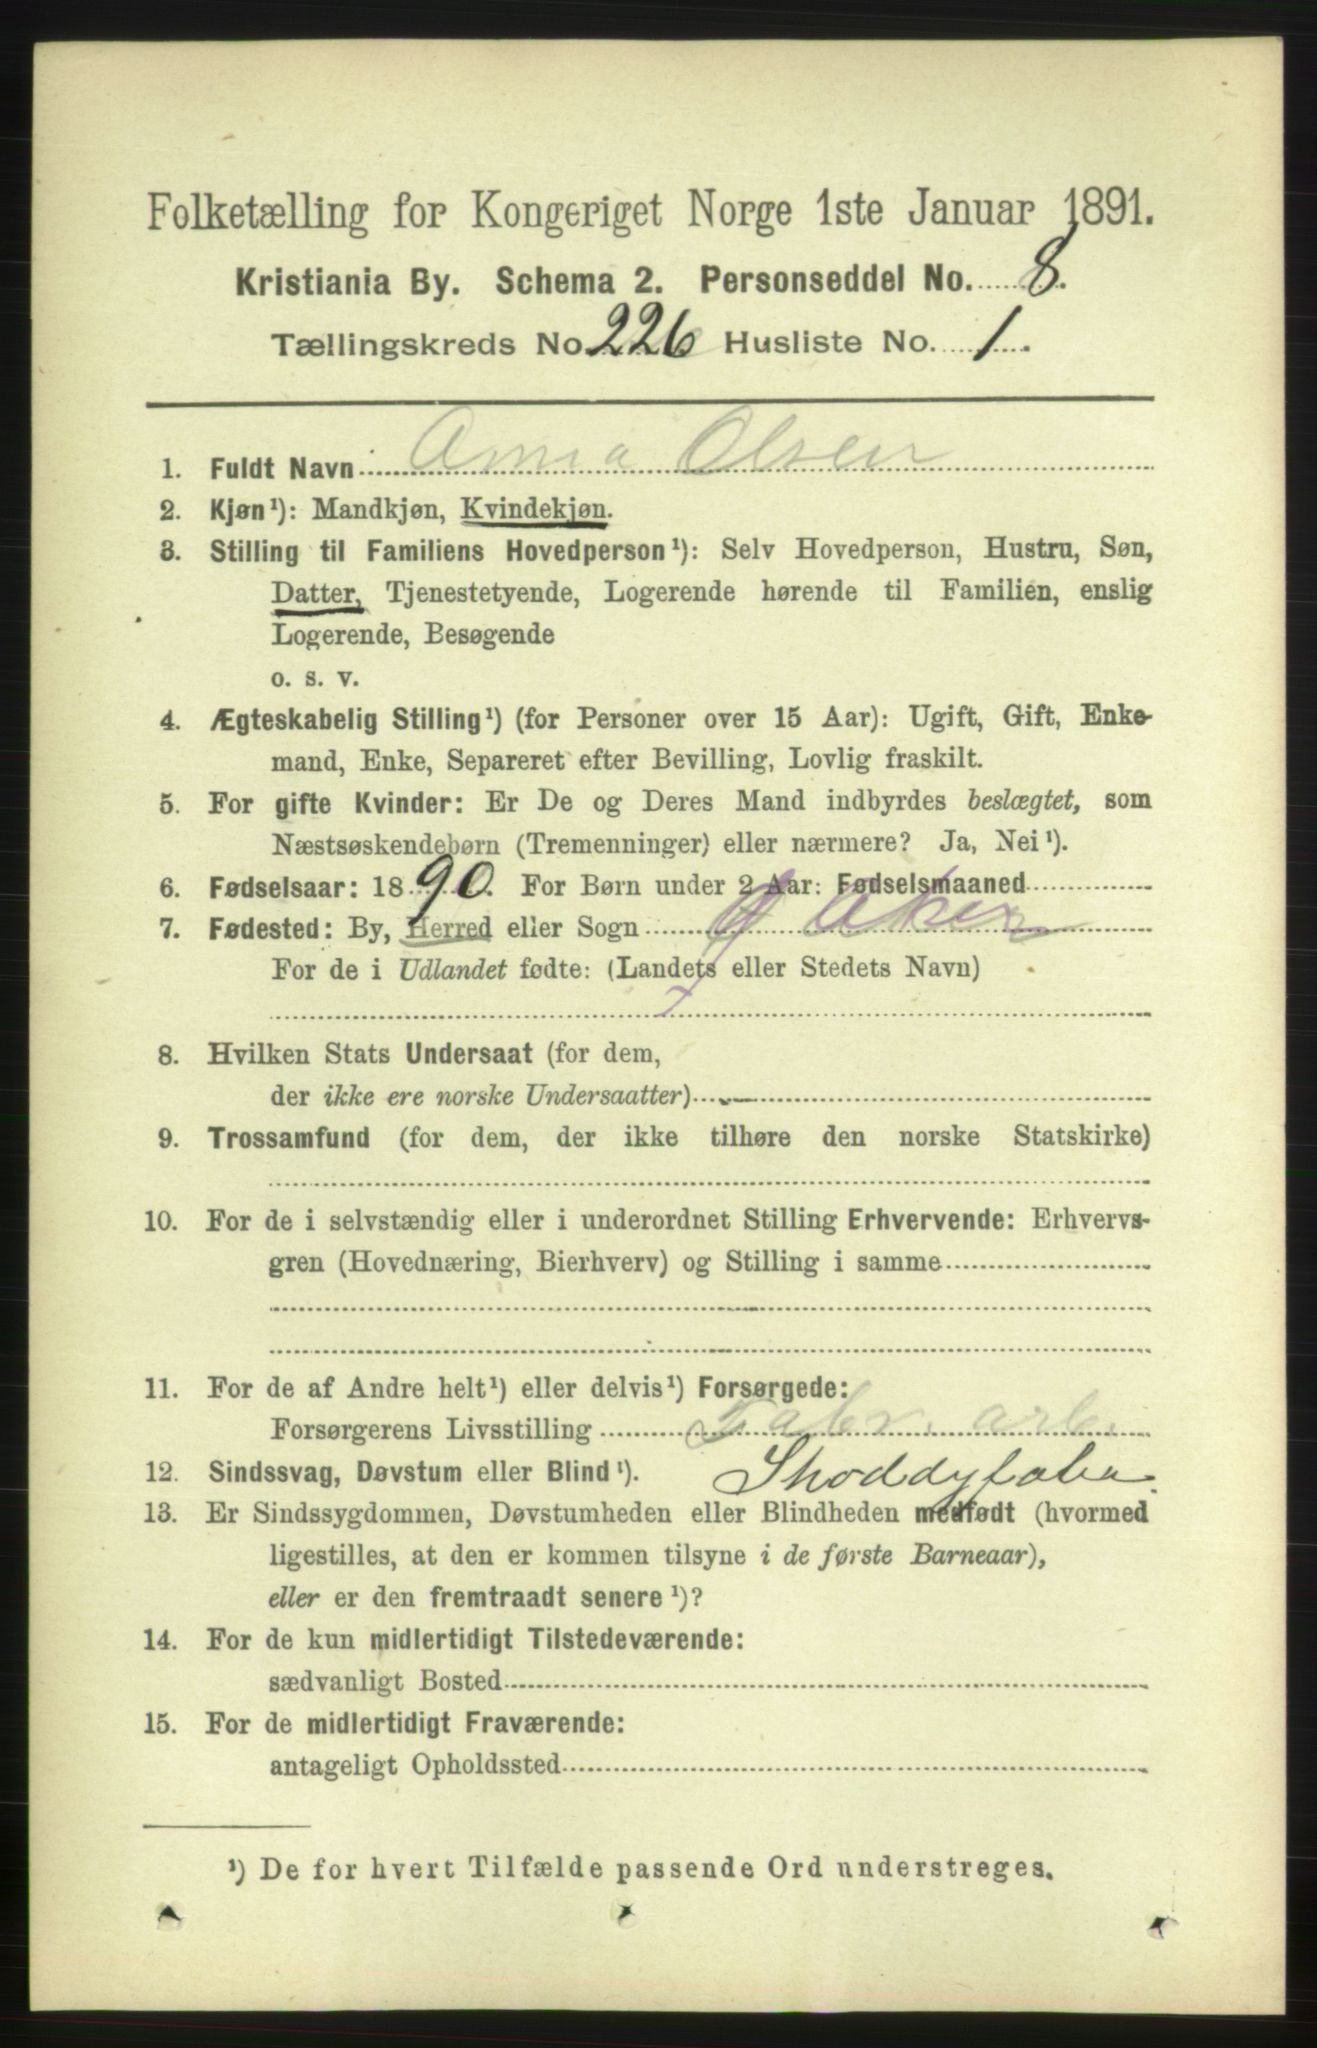 Folketælling for Kongeriget Norge 1ste Januar 1891.
Kristiania By. Schema 2. Personseddel No. 8.
Tællingskreds No 226 Husliste No. 1.
1. Fuldt Navn Anna Olsen
2. Kjøn¹): Mandkjøn, Kvindekjøn.
3. Stilling til Familiens Hovedperson¹): Selv Hovedperson, Hustru, Søn,
Datter, Tjenestetyende, Logerende hørende til Familien, enslig
Logerende, Besøgende
o. s. v.
4. Ægteskabelig Stilling¹) (for Personer over 15 Aar): Ugift, Gift, Enke-
mand, Enke, Separeret efter Bevilling, Lovlig fraskilt.
5. For gifte Kvinder: Er De og Deres Mand indbyrdes beslægtet, som
Næstsøskendebørn (Tremenninger) eller nærmere? Ja, Nei¹).
6. Fødselsaar: 1890. For Børn under 2 Aar: Fødselsmaaned
7. Fødested: By, Herred eller Sogn Aker
For de i Udlandet fødte: (Landets eller Stedets Navn)
8. Hvilken Stats Undersaat (for dem,
der ikke ere norske Undersaatter)
9. Trossamfund (for dem, der ikke tilhøre den norske Statskirke)
10. For de i selvstændig eller i underordnet Stilling Erhvervende: Erhvervs-
gren (Hovednæring, Bierhverv) og Stilling i samme
11. For de af Andre helt¹) eller delvis¹) Forsørgede:
Forsørgerens Livsstilling Fabr. arb.
12. Sindssvag, Døvstum eller Blind¹). Shoddyfabr.
13. Er Sindssygdommen, Døvstumheden eller Blindheden medfødt (hvormed
ligestilles, at den er kommen tilsyne i de første Barneaar),
eller er den fremtraadt senere¹)?
14. For de kun midlertidigt Tilstedeværende:
sædvanligt Bosted
15. For de midlertidigt Fraværende:
antageligt Opholdssted
¹) De for hvert Tilfælde passende Ord understreges.